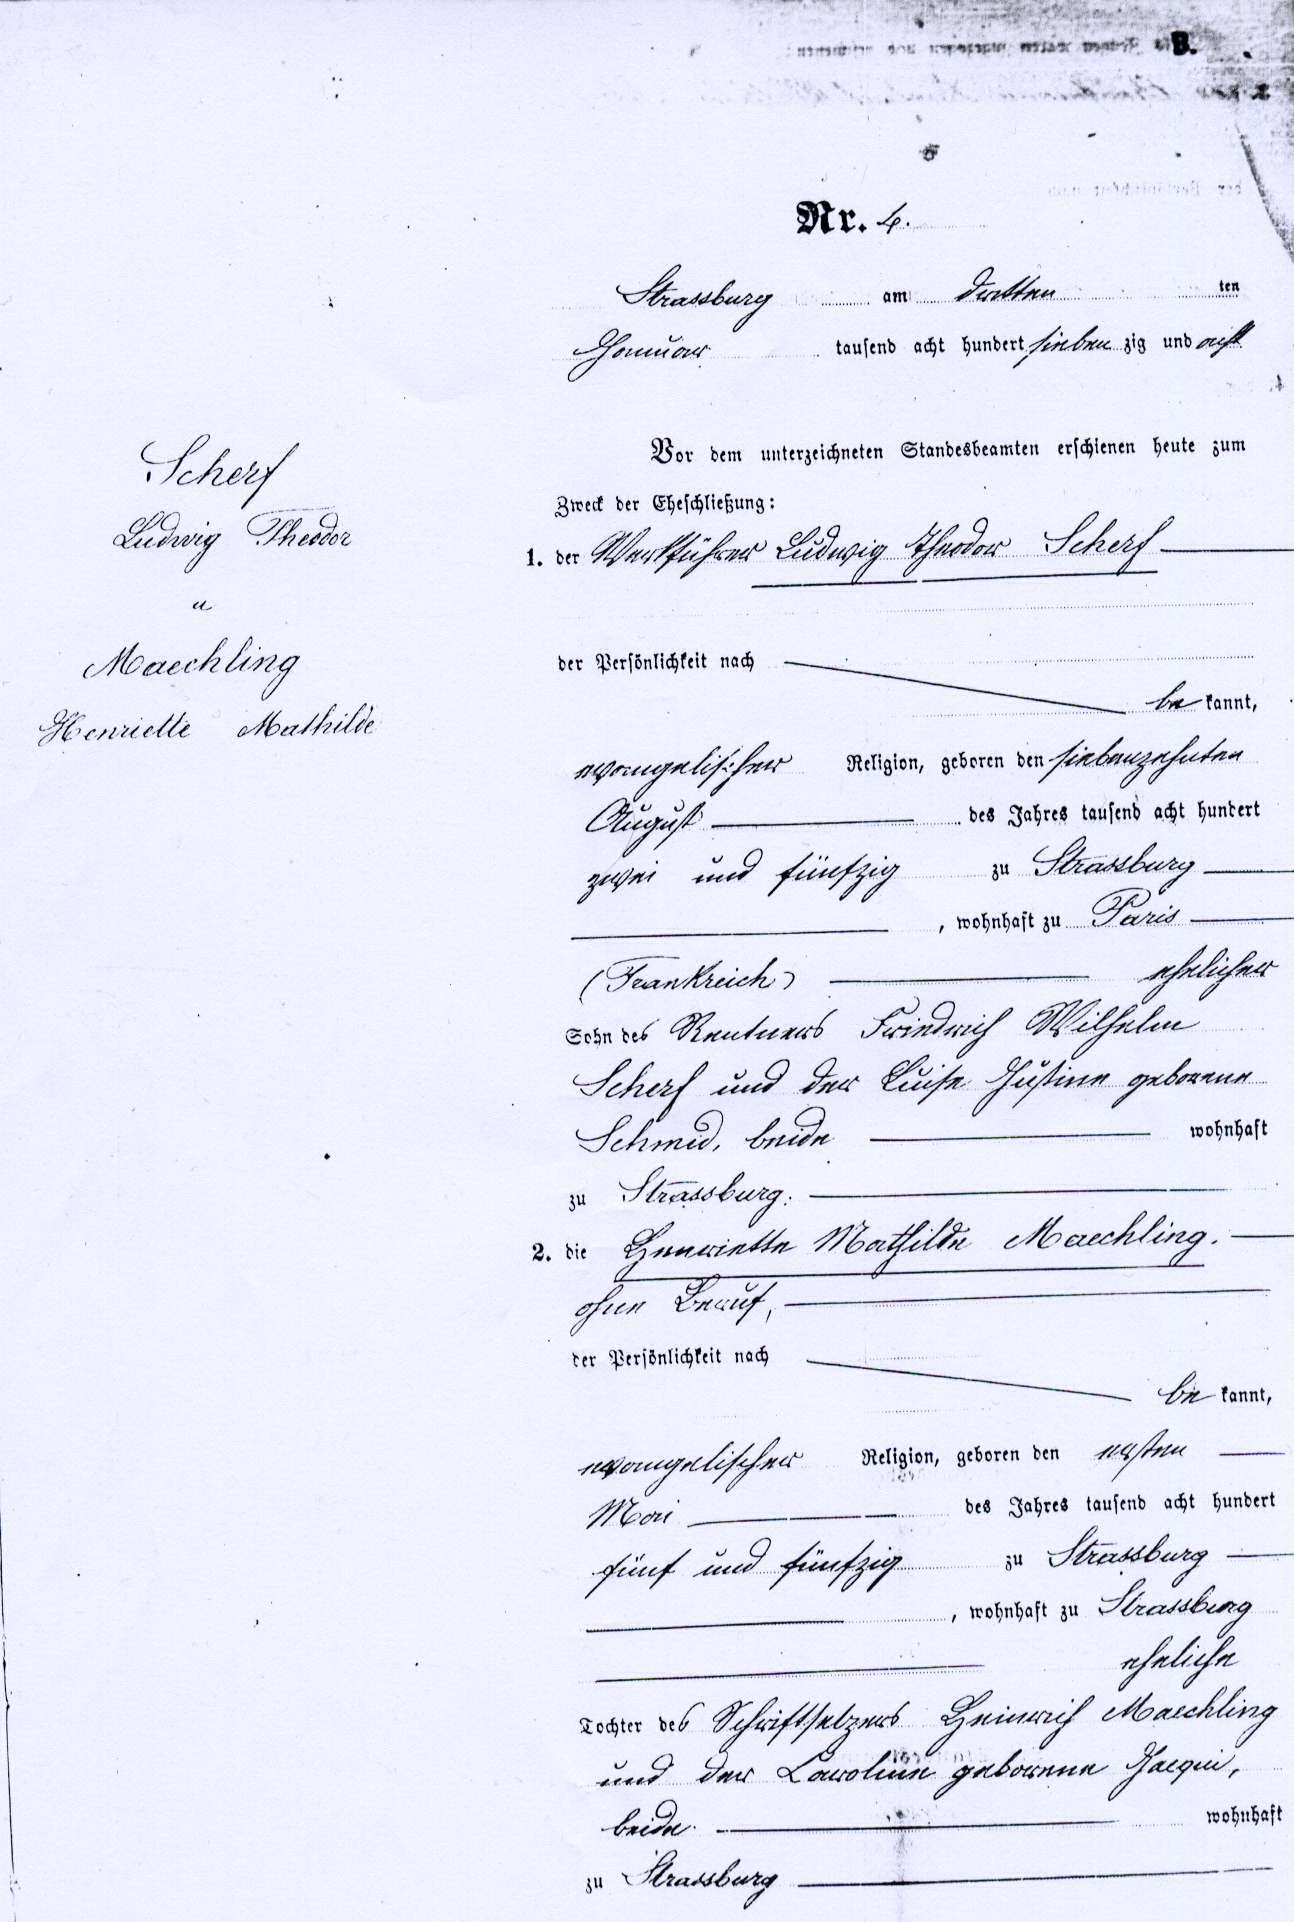 B.
Nr. 4.
Strassburg am dritten ten
Januar tausend acht hundert sieben zig und acht
Scherf
Ludwig Theodor
u
Maechling
Henriette Mathilde
Vor dem unterzeichneten Standesbeamten erschienen heute zum
Zweck der Eheschließung:
1. der Werkführer Ludwig Theodor Scherf
der Persönlichkeit nach
be kannt,
evangelischer Religion, geboren den siebenzehnten
August des Jahres tausend acht hundert
zwei und fünfzig zu Strassburg
, wohnhaft zu Paris
(Frankreich) ehelicher
Sohn des Rentners Friedrich Wilhelm
Scherf und der Luise Justine geborene
Schmid, beide wohnhaft
zu Strassburg.
2. die Henriette Mathilde Maechling.
ohne Beruf,
der Persönlichkeit nach
be kannt,
evangelischer Religion, geboren den ersten
Mai des Jahres tausend acht hundert
fünf und fünfzig zu Strassburg
, wohnhaft zu Strassburg
eheliche
Tochter des Schriftsetzers Heinrich Maechling
und der Caroline geborene Jaequi,
beide wohnhaft
zu Strassburg